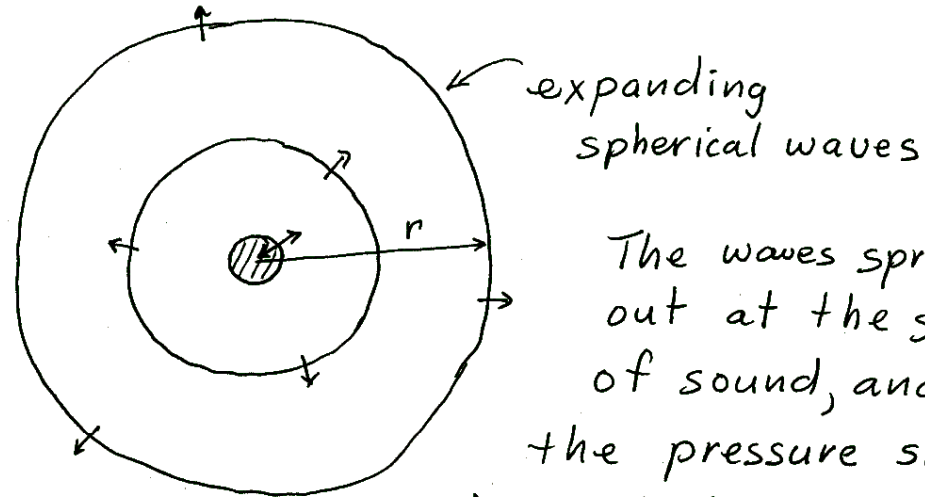 expanding
spherical waves
r
The waves spr
out at the s
of sound, and
the pressure s